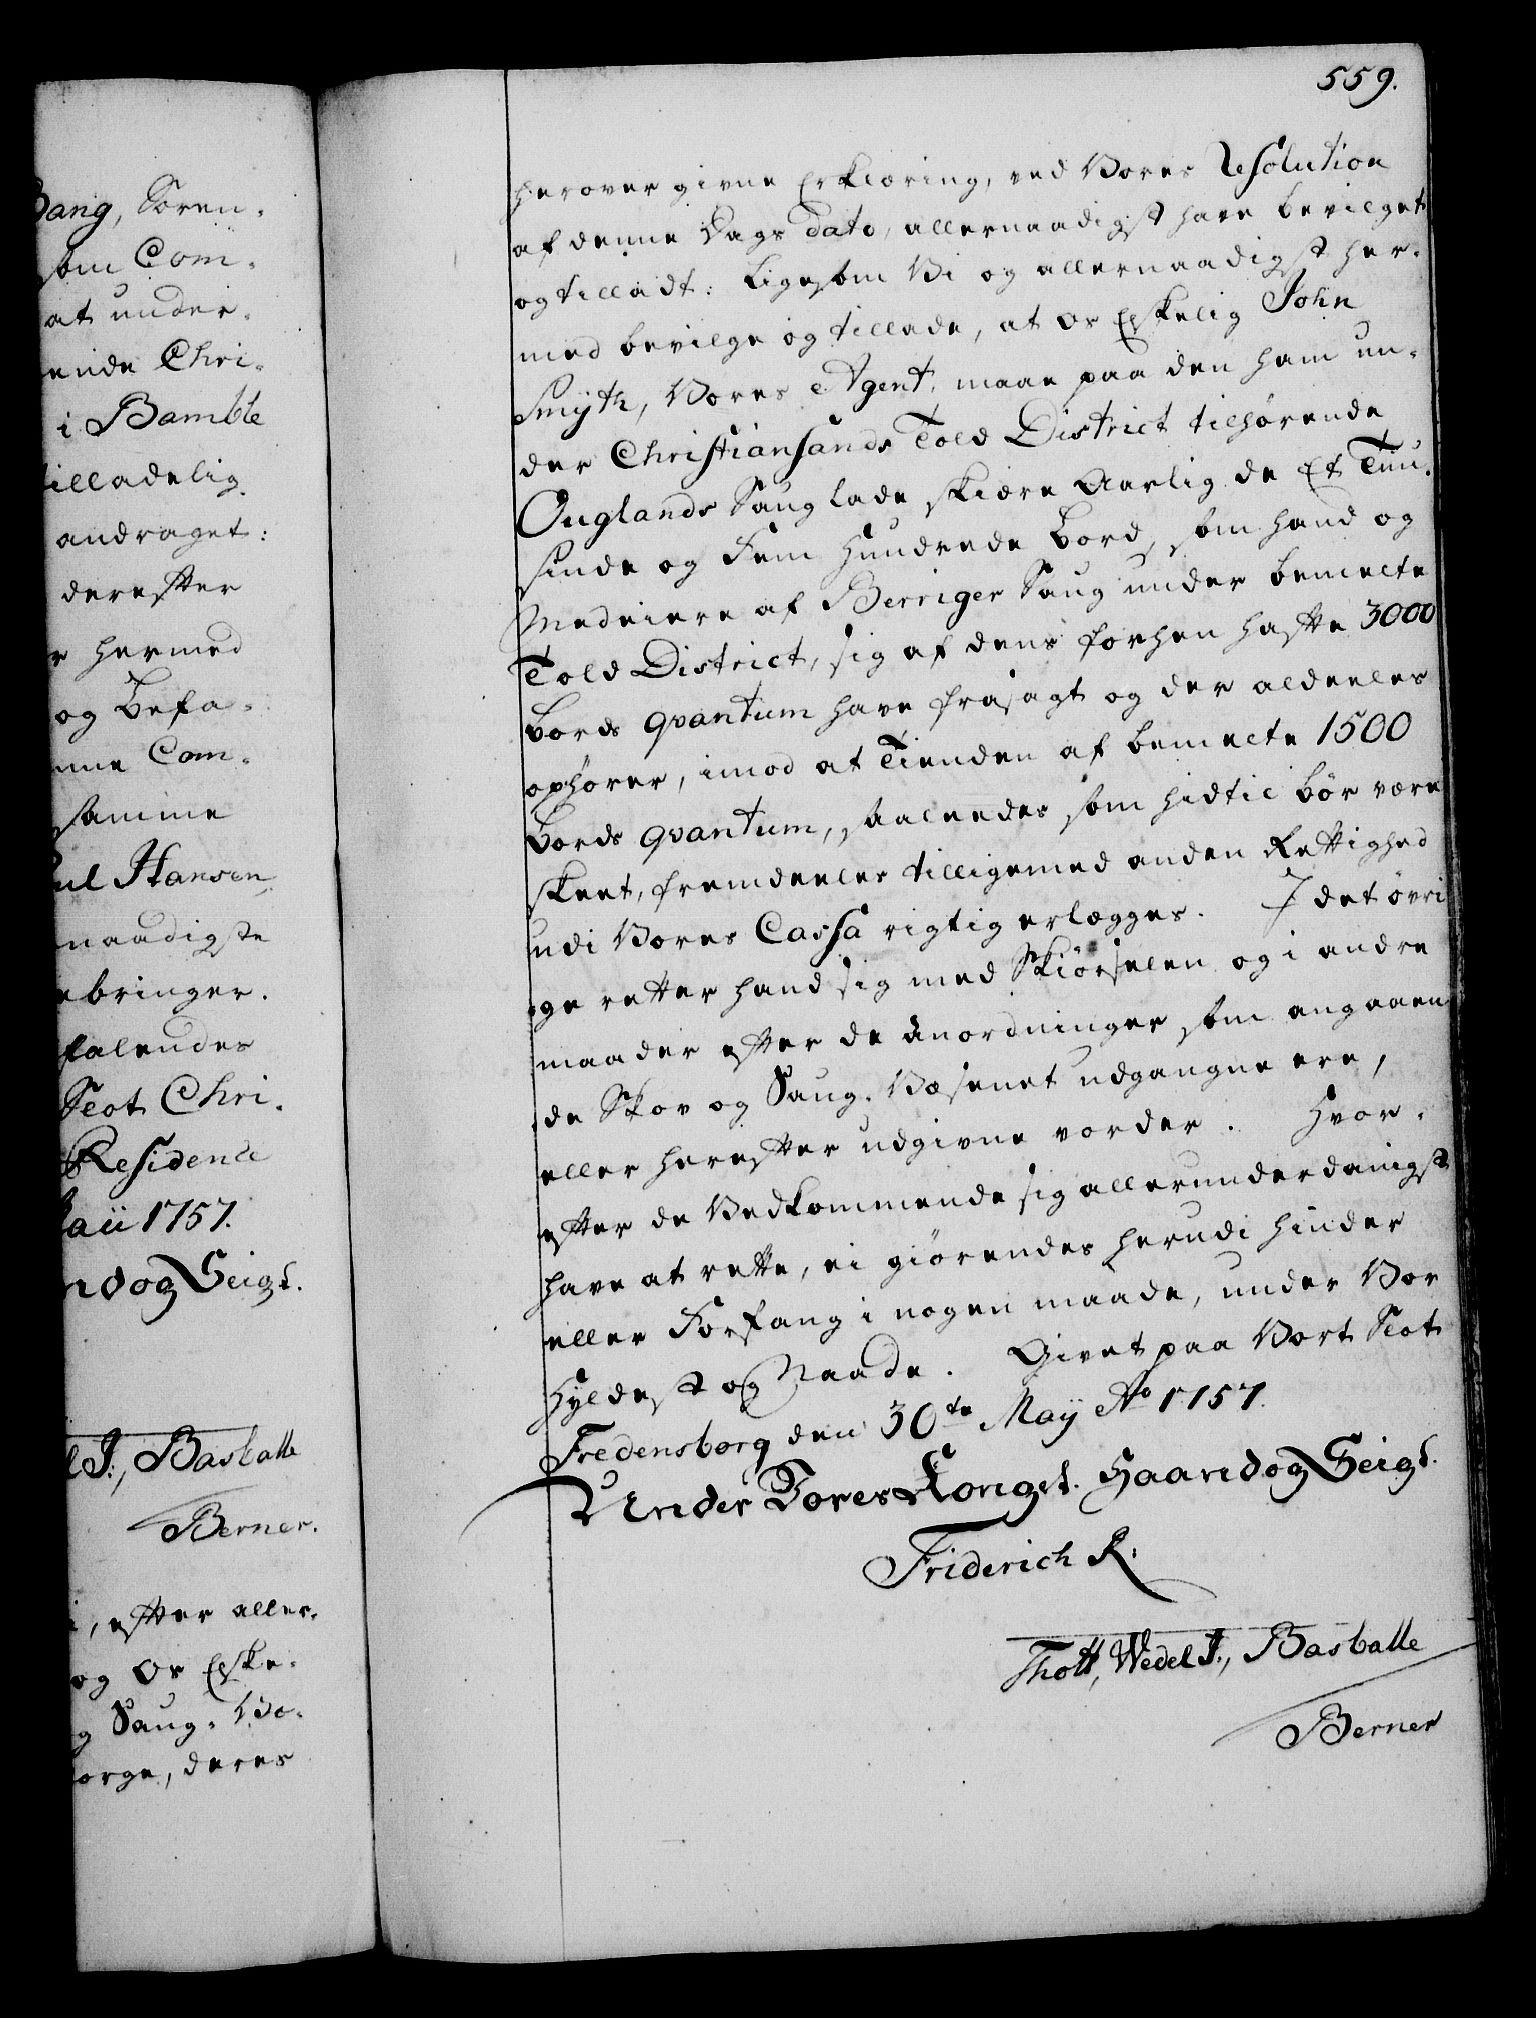 559.
Bang, Sören-
som Com-
at under-
ende Chri-
i Bamble
tilladelig
andraget:
derefter
hermed
og Befa-
Com-
samme
Hansen,
naadigste
bringer.
Slot Chri-
Residence
Maii 1757.
Haand og Seigl.
J:, Basballe
Berner.
, efter aller-
og Os Elske-
og Saug-Væ-
Sorge, deres
herover givne Erklæring, ved Vores Resolution
af denne Dags Dato, allernaadigst have bevilget
og tilladt: Ligesom Vi og allernaadigst her-
med bevilge og tillade, at Os Elskelig John
Smÿth, Vores Agent, maae paa den ham un-
der Christiansands Told District tilhørende
Ouglands Saug lade skiære Aarlig de Et Tuu-
sinde og Fem Hundrede Bord, som hand og
Medeiere af Berriger Saug under bemelte
Told District, sig af dens forhen hafte 3000
Bords qvantum have frasagt og der aldeeles
ophører, imod at Tienden af bemelte 1500
Bords qvantum, saaleedes som hidtil bør være
skeet, fremdeeles tilligemed anden Rettighed
udi Vores Cassa rigtig erlægges. I det øvri
ge retter hand sig med Skiørselen og i andre
maader efter de Anordninger som angaaen
de Skov og Saug-Væsenet udgangne ere,
eller herefter udgivne vorder. Hvor-
efter de Vedkommende sig allerunderdanigst
have at rette, ei giørendes herudi hinder
eller Forfang i nogen maade, under Vor
Hyldest og Naade. Givet paa Vort Slot
Fredensborg den 30te Maÿ Ao 1757.
Under Vores Kongel. Haand og Seigl.
Friderich R:
Thott, Wedel J:, Basballe
Berner